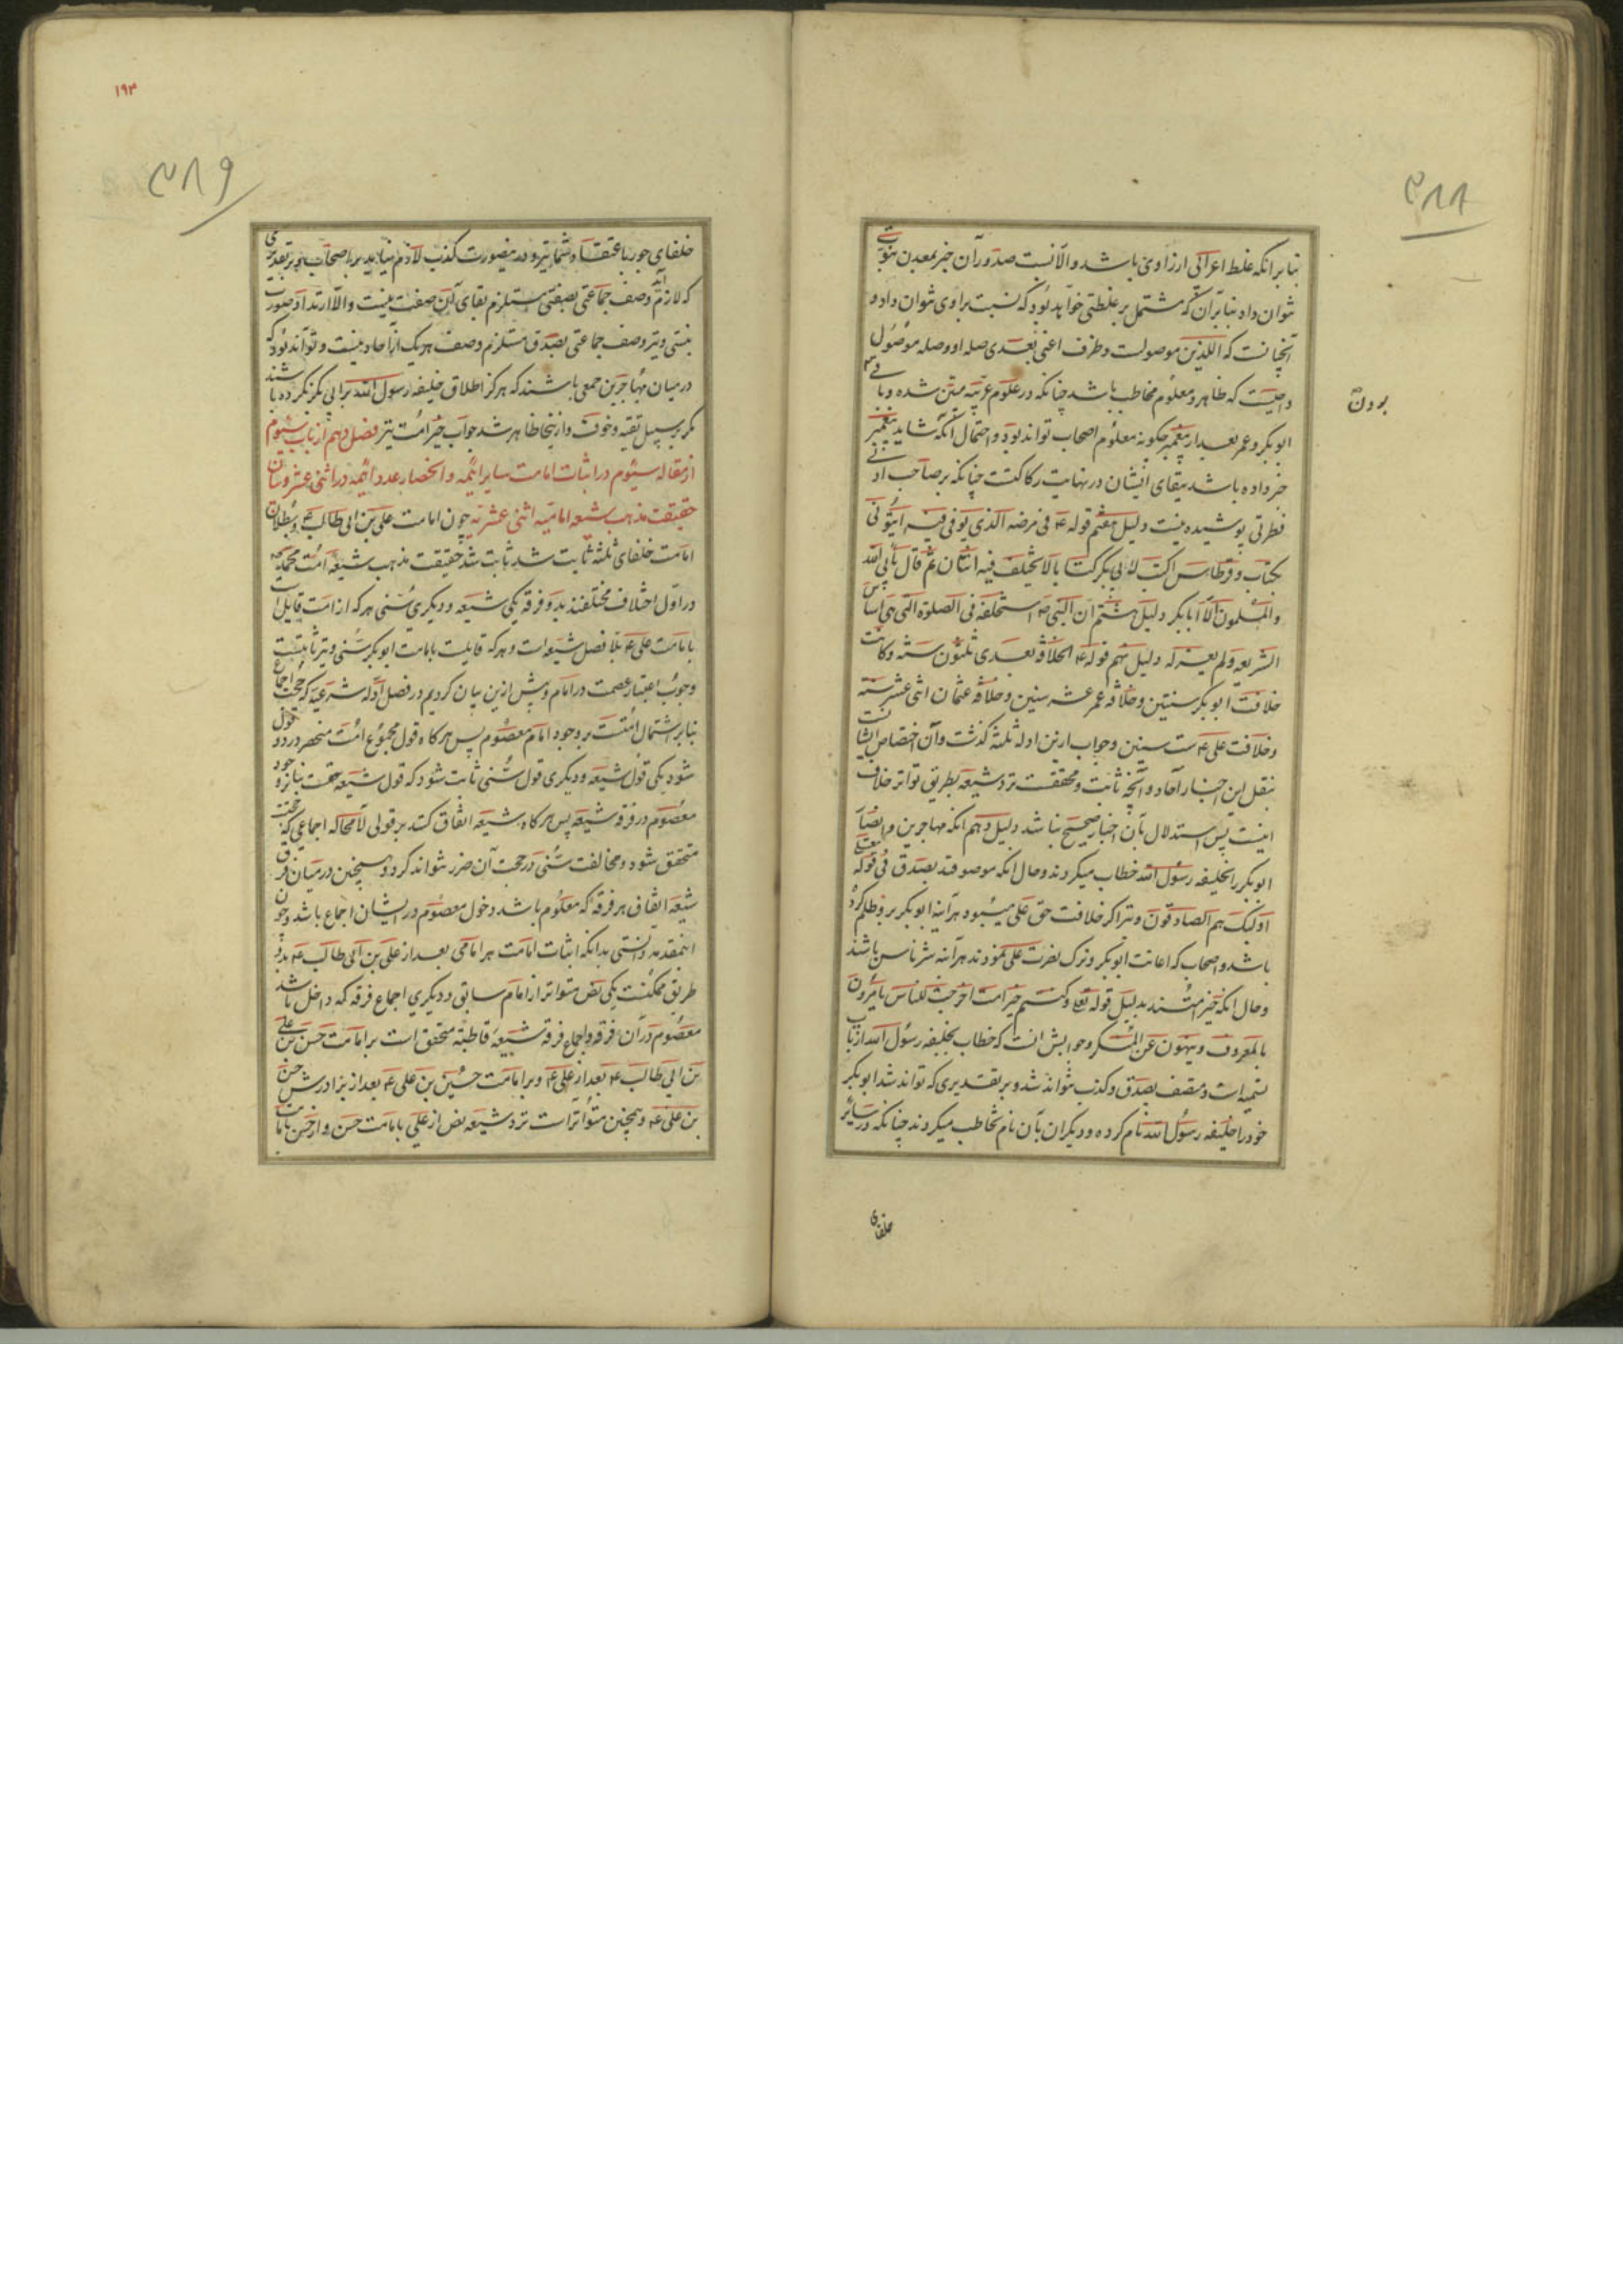 ٣٨٨
بنا بر انکه غلط اعرابی از راوی باشد و الا نسبت صدور آن خبر بمعدن نبوت
نتوان داد بنا بر آن که مشتمل بر غلطی خواهد بود که نسبت براوی نتوان داد و
انچنانست که اللذین موصولست و ظرف اعنی بعدی صله او و صله موصول
واجبست که ظاهر و معلوم مخاطب باشد چنانکه در علوم عربیه مبین شده و
بودن
ابو بکر و عمر بعد از پیغمبر چکونه معلوم اصحاب تواند بود و احتمال انکه شاید پیغمبر
خبر داده باشد ببقای ایشان در نهایت رکاکتست چنانکه بر صاحب ادنی
فطرتی پوشیده نیست دلیل هفتم قوله ع فی مرضه الذی توفی فیه ایتونی
بکتاب و قرطاس اکتب لابی بکر کتابا لا یختلف فیه اثنان ثم قال یابی الله
و المسلمون الا ابا بکر دلیل هشتم ان النبی ص استخلفه فی الصلوة التی هی اساس
الشریعه و لم یعزله دلیل نهم قوله ع الخلافة بعدی ثلثون سنة و کانت
خلافت ابو بکر سنتین و خلافة عمر عشر سنین و خلافة عثمان اثنی عشر سنة
و خلافت علی ع ست سنین و جواب ازین ادله ثلثه کذشت و آن اختصاص ایشانست
بنقل این اخبار آحاد و آنچه ثابت و محققست نزد شیعه بطریق تواتر خلاف
اینست پس استدلال بآن اخبار صحیح نباشد دلیل دهم انکه مهاجرین و انصار
ابو بکر را خلیفه رسول الله خطاب میکردند و حال انکه موصوفند بصدق فی قوله تعالی
اولئک هم الصادقون و نیز اکر خلافت حق علی میبود هر آینه ابو بکر بر وظلم کرده
باشد و اصحاب که اعانت ابو بکر و ترک نصرت علی نمودند هر آینه شر ناس باشند
و حال انکه خیر امتند بدلیل قوله تع و کنتم خیر امت اخرجت للناس یامرون
بالمعروف و ینهون عن المنکر و جوابش انست که خطاب بخلیفه رسول الله از باب
تسمیه است و متصف بصدق و کذب نتواند شد و بر تقدیری که تواند شد ابو بکر
خود را خلیفه رسول الله نام کرده و دیکران بآن نام مخاطب میکردند چنانکه در سایر
خلفای
١٩٣
٣٨٩
که لازم آید وصف جماعتی بصفتی مستلزم بقای آن صفت نیست و الا ارتداد صورت
نبستی و نیز وصف جماعتی بصدق مستلزم وصف هر یک از آحاد نیست و تواند بود که
در میان مهاجرین جمعی باشند که هرکز اطلاق خلیفه رسول الله بر ابی بکر نکرده باشند
مکر بر سبیل تقیه و خوف و ازینجا ظاهر شد جواب خیر امت نیز فصل دهم از باب سیوم
از مقاله سیوم در اثبات امامت سایر ائمه و انحصار عدد ائمه در اثنی عشر و بیان
حقیقت مذهب شیعه امامیه اثنی عشریه چون امامت علی بن ابی طالب ع و بطلان
امامت خلفای ثلثه ثابت شد ثابت شد حقیقت مذهب شیعه امت محمدیه
در اول اختلاف مختلفند بدو فرقه یکی شیعه و دیکری سنی هر که از امت قایل است
بامامت علی ع بلا فصل شیعه است و هر که قایلست بامامت ابو بکر سنی و نیز ثابتست
وجوب اعتبار عصمت در امام و پیش ازین بیان کردیم در فصل ادله شرعیه که حجت اجماع
بنا بر اشتمال امتست بر وجود امام معصوم پس هرکاه قول مجموع امت منحصر در دو قول
شود یکی قول شیعه و دیکری قول سنی ثابت شود که قول شیعه حقست بنا بر وجود
معصوم در فرقه شیعه پس هرکاه شیعه اتفاق کنند بر قولی لا محاله اجماعی که حجتست
متحقق شود و مخالفت سنی در حجت آن ضرر نتواند کرد و همچنین در میان فرق
شیعه اتفاق هر فرقه که معلوم باشد دخول معصوم در ایشان اجماع باشد و چون
اینمقدمه دانستی بدانکه اثبات امامت هر امامی بعد از علی بن ابی طالب ع بدو
طریق ممکنست یکی نص متواتر از امام سابق و دیکری اجماع فرقه که داخل باشد
معصوم در آن فرقه و اجماع فرقه شیعه قاطبة متحقق است بر امامت حسن بن علی
بن ابی طالب ع بعد از علی ع و بر امامت حسین بن علی ع بعد از برادرش حسن
بن علی ع و همچنین متواتر است نزد شیعه نص از علی بامامت حسن و از حسن بامامت